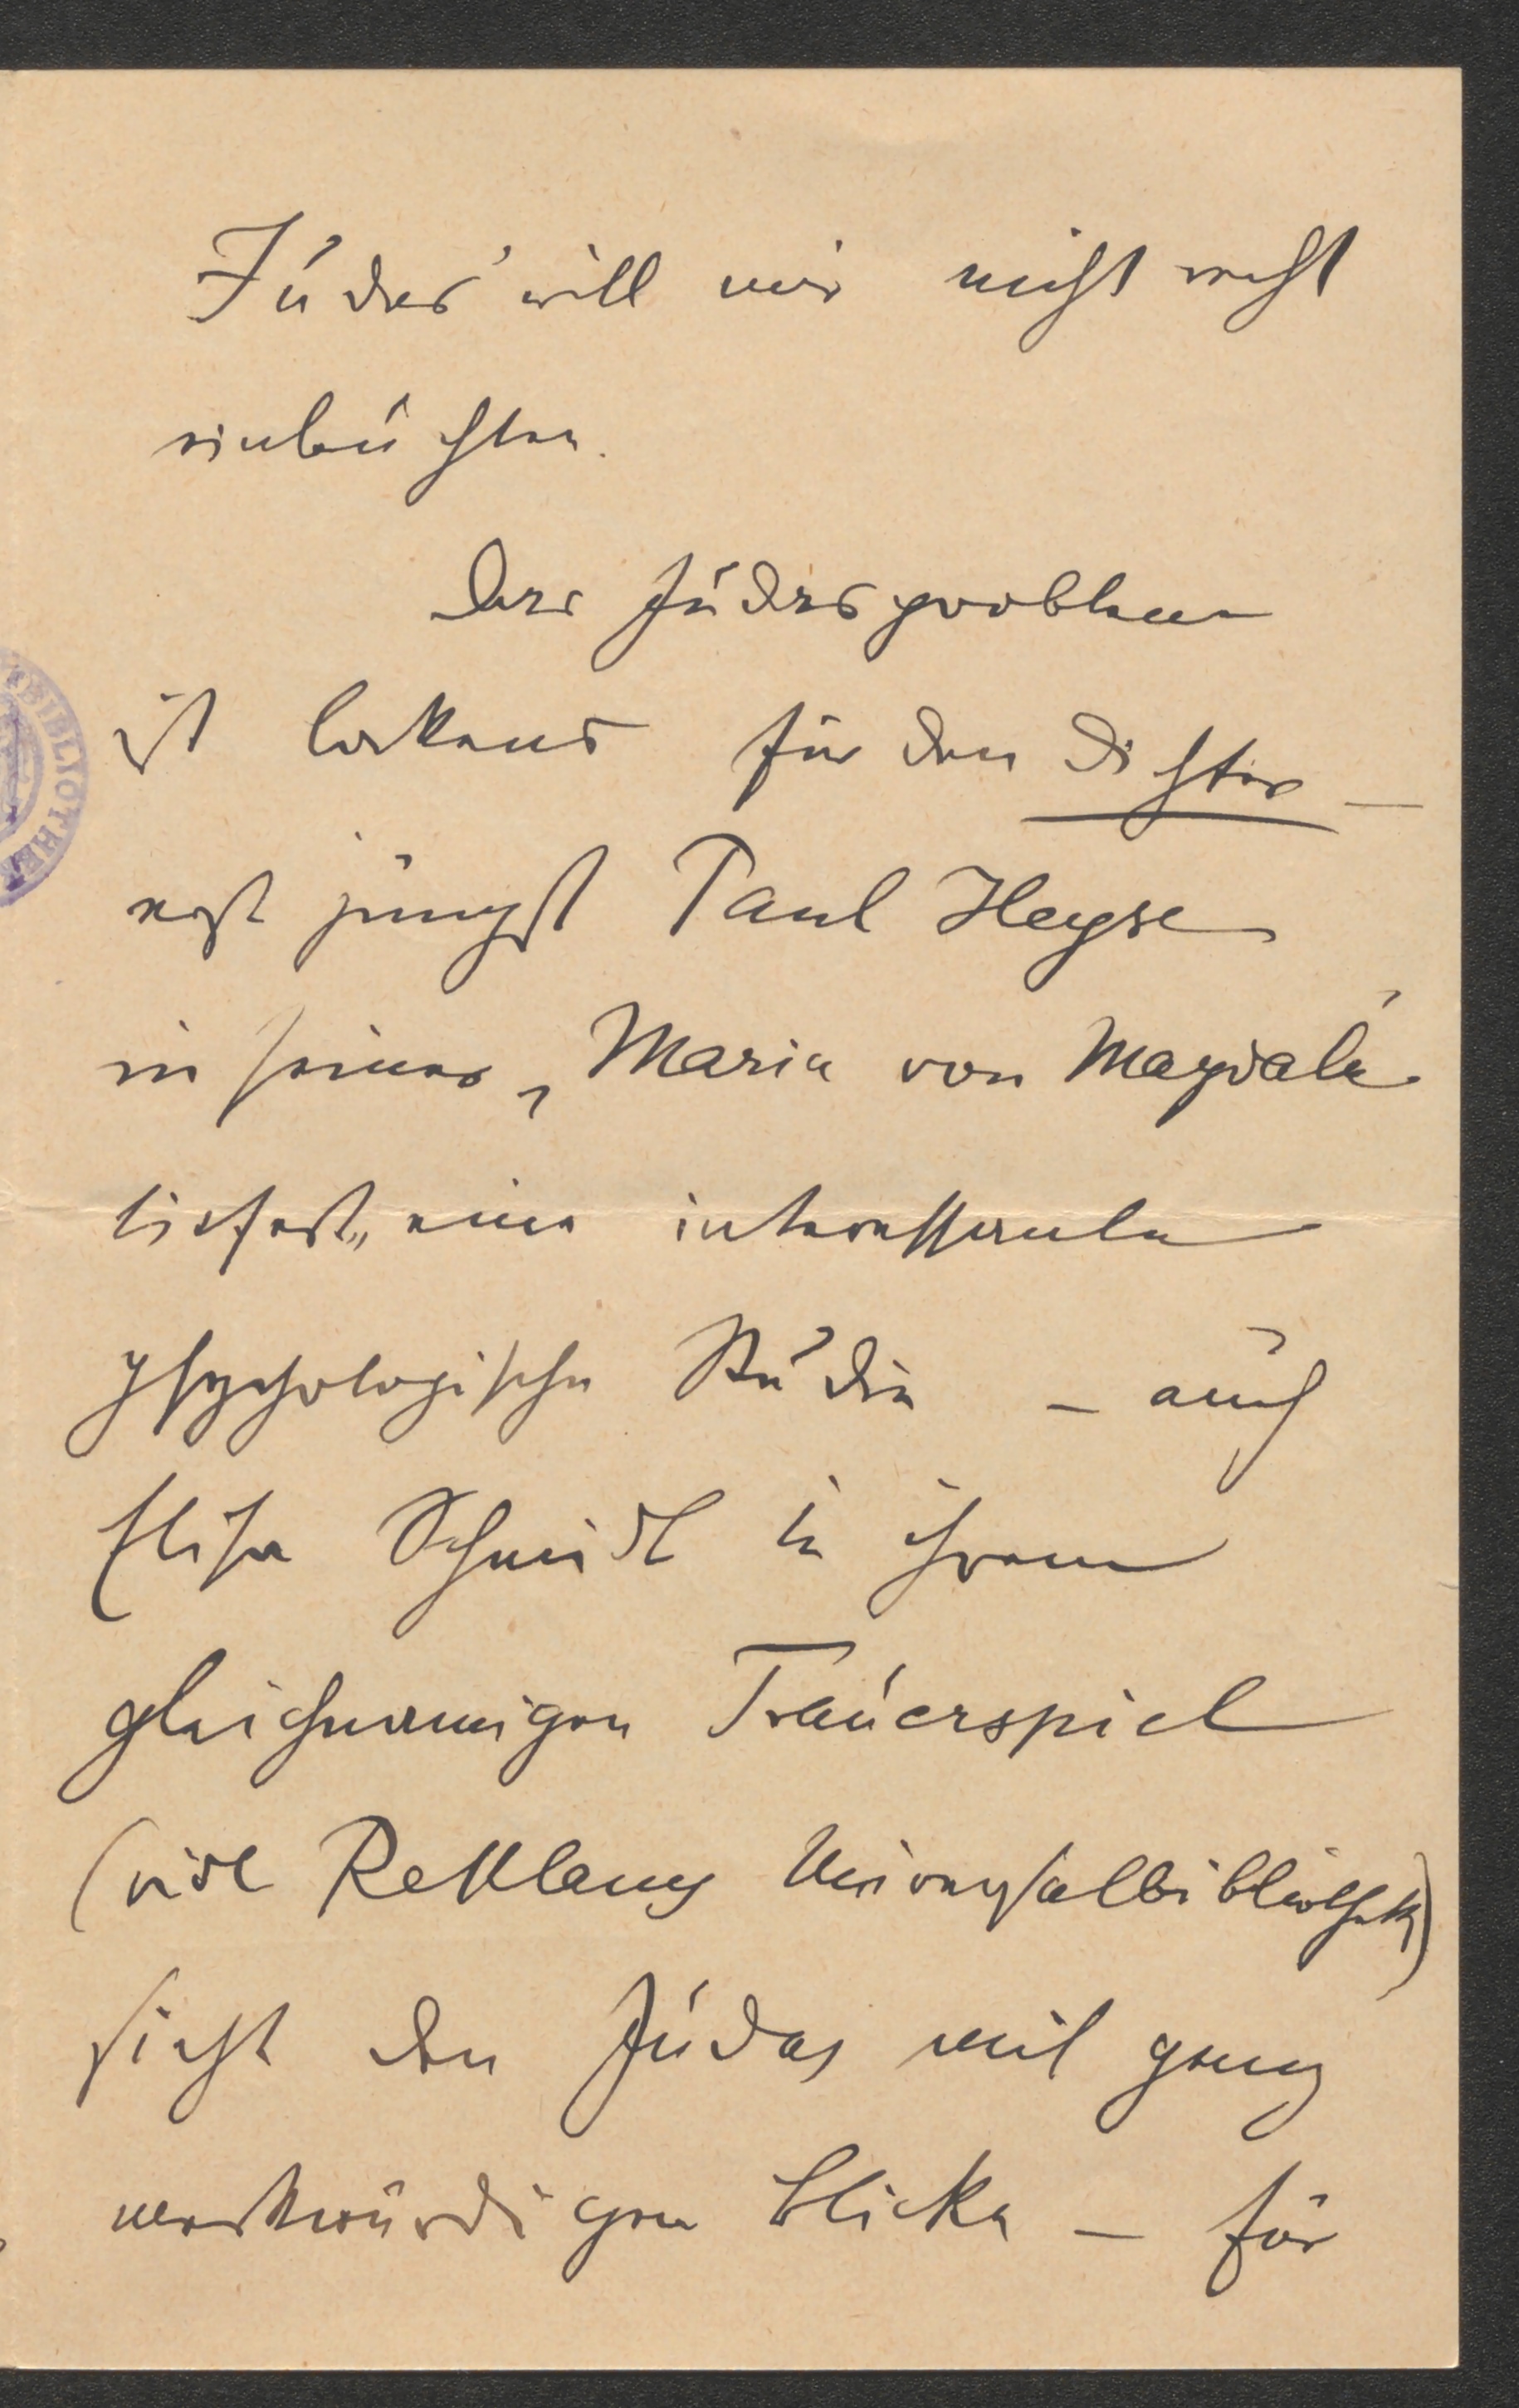 Judas' will mir nicht recht
einleuchten.
Das Judasproblem
ist lockend für den Dichter —
erst jüngst Paul Heyse
in seiner „Maria von Magdala"
liefert, eine interessante
psychologische Studie — auch
Elise Schmidt in ihrem
gleichnamigen Trauerspiel
(vide Reklams Universalbibliothek)
sieht den Judas mit ganz
merkwürdigem Blicke — für
BIBLIOTHEK